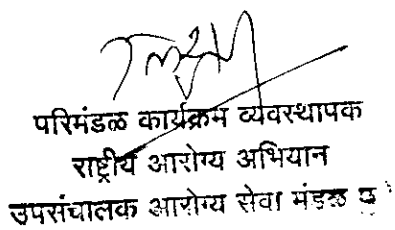 परिमंडळ कार्यक्रम व्यवस्थापक
राष्ट्रीय आरोग्य अभियान
उपसंचालक आरोग्य सेवा मंडळ